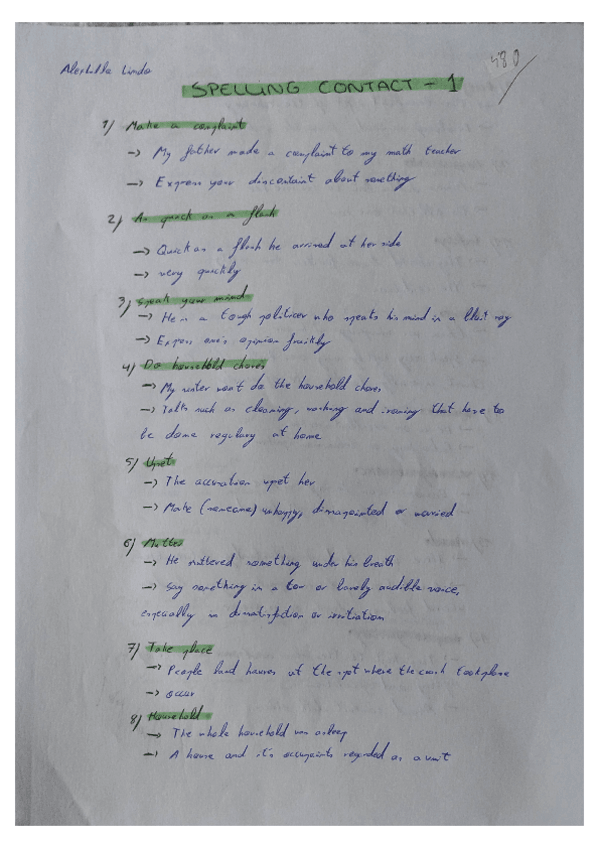 480
SPELLING CONTACT - 1
1) Make a complaint
-> My father made a complaint to my math teacher
-> Express your discontaint about something
2) As quick as a flash
-> Quick as a flash he arrived at her side
-> very quickly
3) Speak your mind
-> He is a tough politicer who speaks his mind in a blunt way
-> Express one's opinion frankly
4) Do household chores
-> My sister won't do the household chores
-> Talks such as cleaning, washing and ironing that have to
be done regulary at home
5) Upset
-> The accusation upset her
-> Make (someone) unhappy, dissapointed or worried
6) Mutter
-> He muttered something under his breath
-> Say something in a low or barely audible voice,
especially in dissatisfction or irritation
7) Take place
-> People laid at the spot where the crash took place
-> occur
8) Household
-> The whole household was asleep
-> A house and it's occupaints regarded as a unit